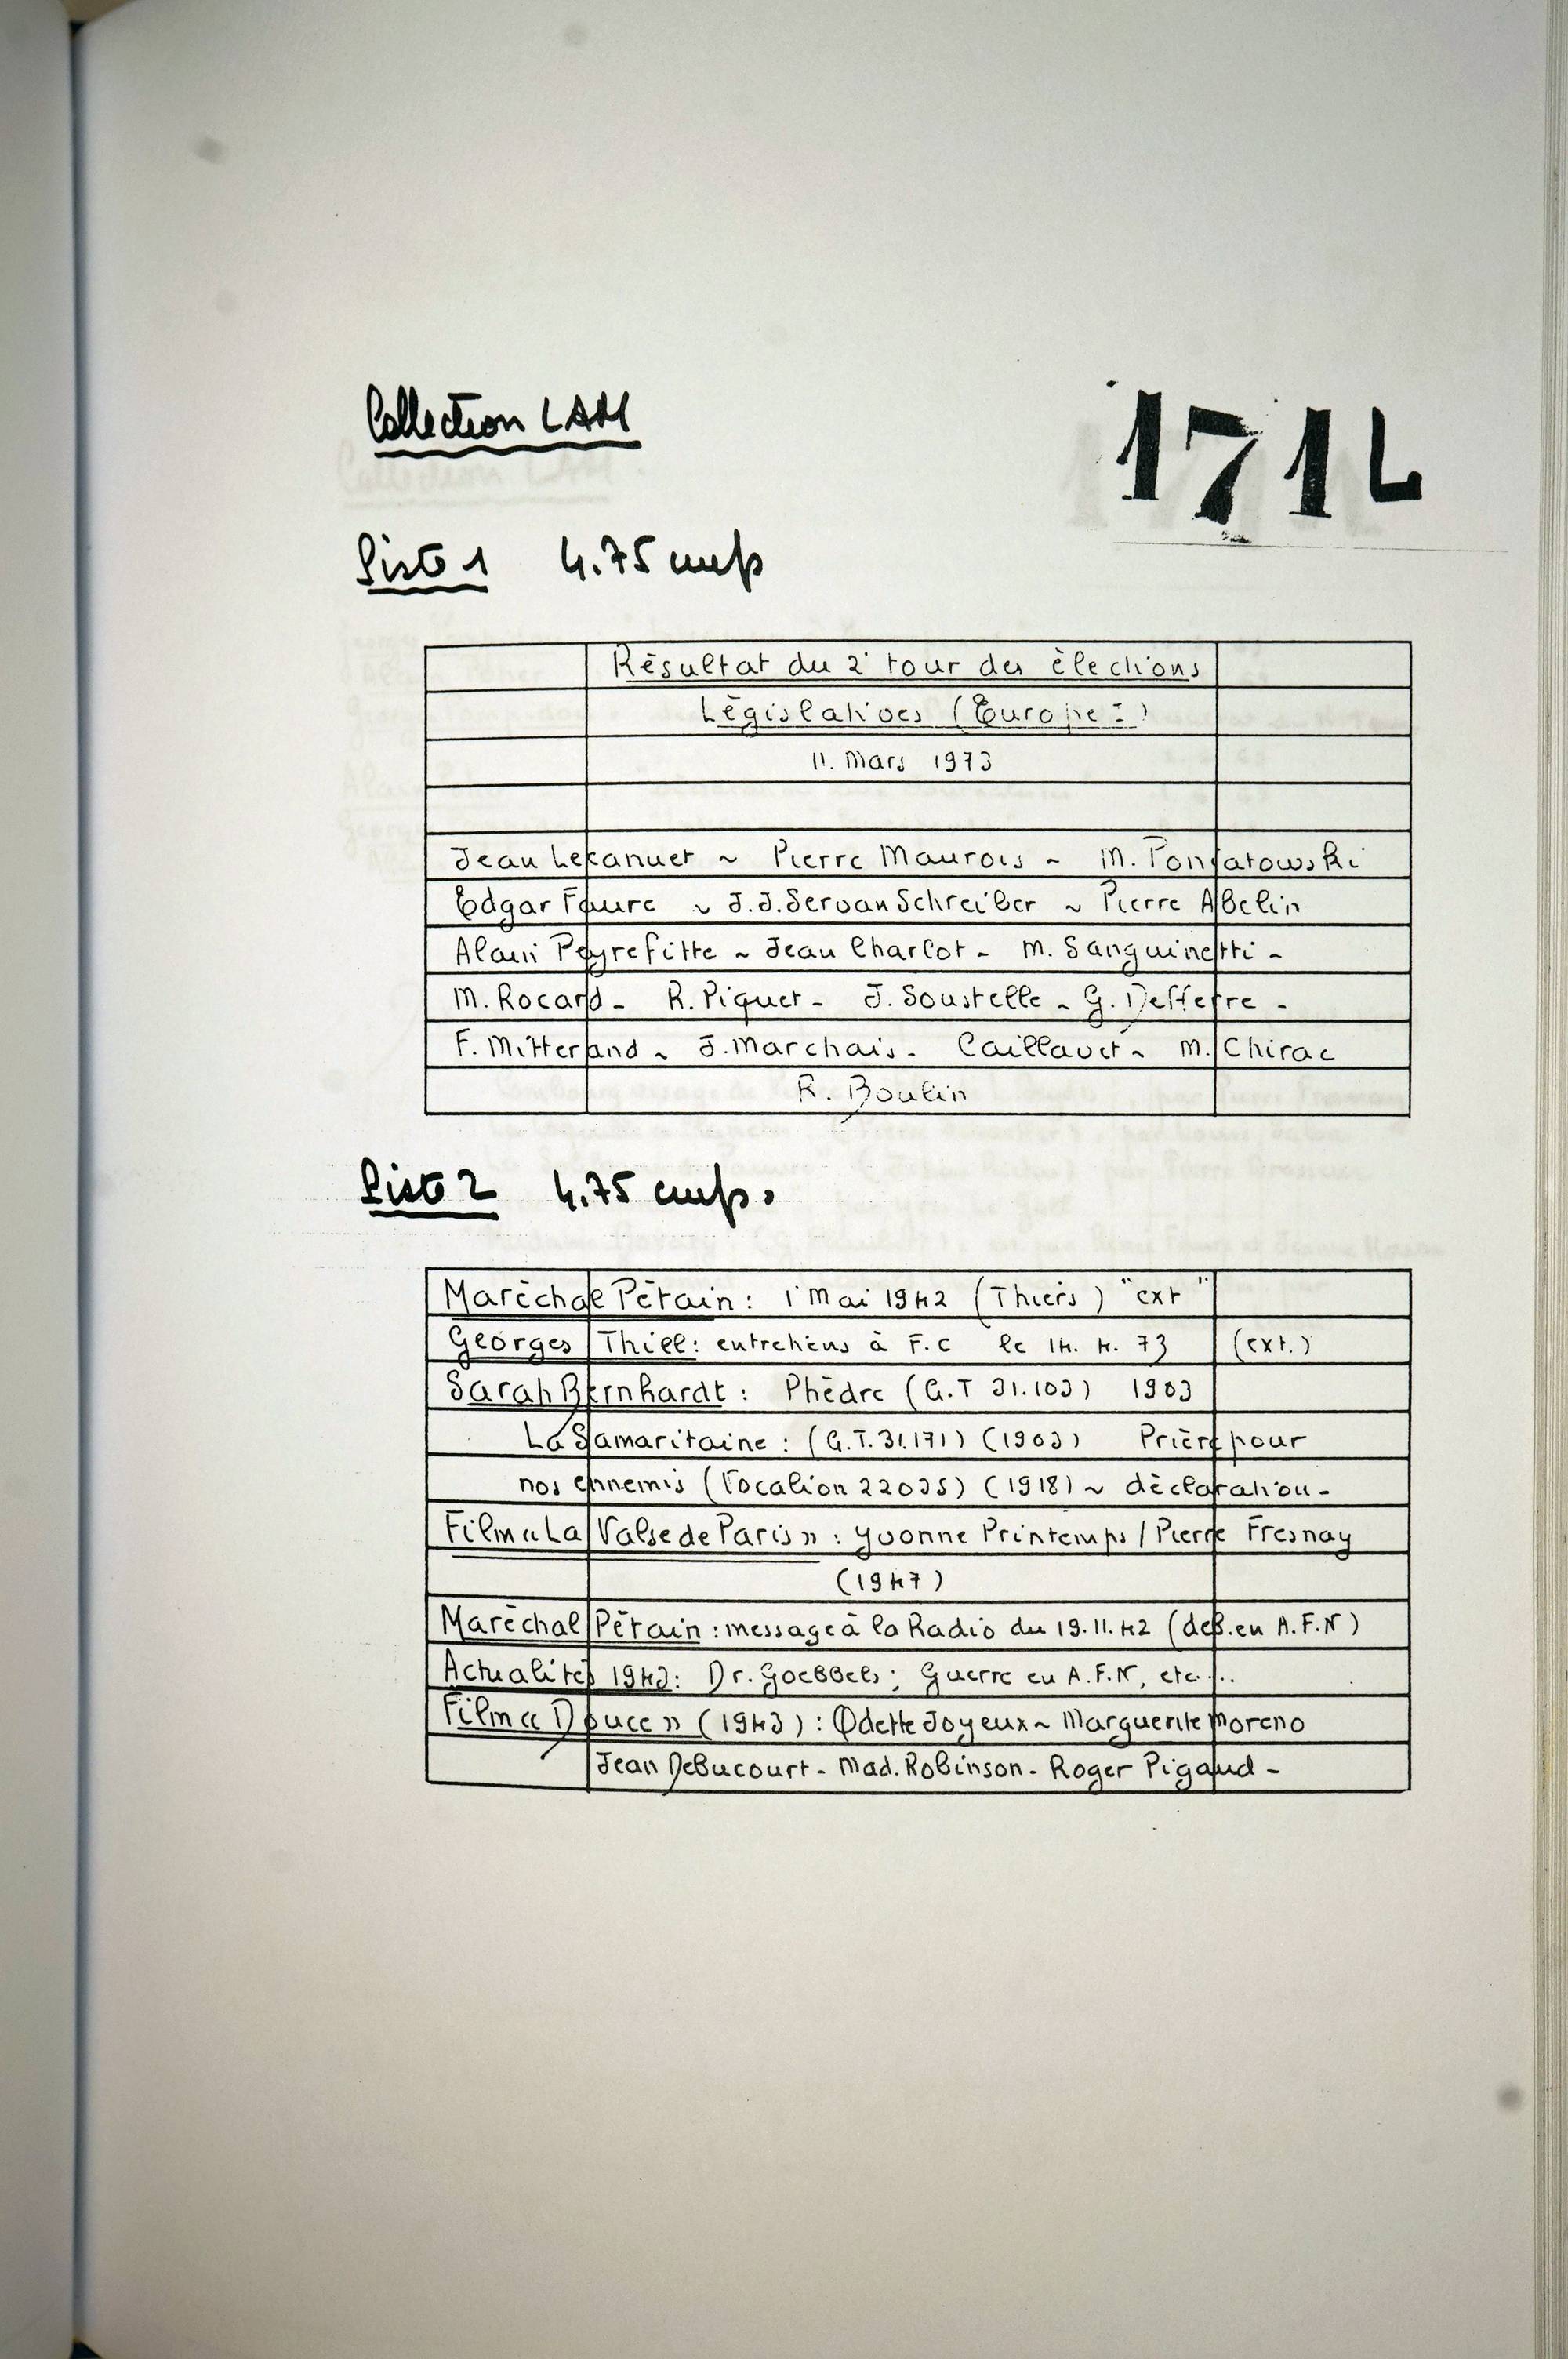 Collection LAM
171L
Piste 1 4.75 cmps
Résultat du 2e tour des élections
Législatives (Europe I)
11. Mars 1973
Jean Lecanuet ~ Pierre Maurois - M. Poniatowski
Edgar Faure ~ J.J. Servan Schreiber ~ Pierre Abelin
Alain Peyrefitte ~ Jean Charlot - M. Sanguinetti -
M. Rocard - R. Piquet - J. Soustelle - G. Defferre -
F. Mitterand - J. Marchais - Caillavet - M. Chirac
R. Boulin
Piste 2 4.75 cmps.
Maréchal Pétain : 1' Mai 1942 (Thiers) "ext"
Georges Thill : entretiens à F.C le 14. 4. 73 (ext.)
Sarah Bernhardt : Phèdre (G.T 31.103) 1903
La Samaritaine : (G.T. 31.171) (1903) Prière pour
nos ennemis (Vocalion 22035) (1918) ~ déclaration -
Film « La Valse de Paris » : Yvonne Printemps / Pierre Fresnay
(1947)
Maréchal Pétain : message à la Radio du 19.11.42 (deb. en A.F.N)
Actualités 1943 : Dr. Goebbels ; Guerre en A.F.N, etc...
Film « Douce » (1943) : Odette Joyeux ~ Marguerite Moreno
Jean Debucourt - Mad. Robinson - Roger Pigaud -